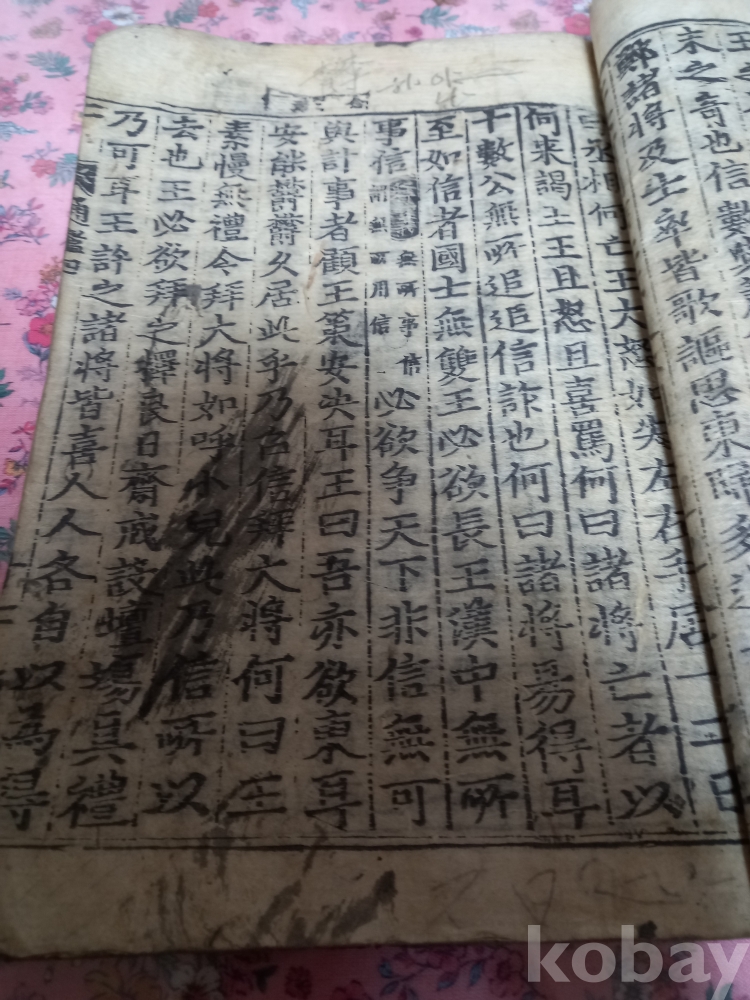 末之奇也信數
鄭諸將及士卒皆歌謳思東歸多道
丞相何亡王大怒如失左右手居一二日
何来謁上王且怒且喜罵何曰諸將亡者以
十數公無所追追信詐也何曰諸將易得耳
至如信者國士無雙王必欲長王漢中無所
事信 無所事信 謂無所用信 必欲爭天下非信無可
與計事者顧王策安決耳王曰吾亦欲東耳
安能鬱鬱久居此乎乃召信拜大將何曰王
素慢無禮今拜大將如呼小兒此乃信所以
去也王必欲拜之擇良日齋戒設壇場具禮
乃可耳王許之諸將皆喜人人各自以為得
通鑑四
kobay